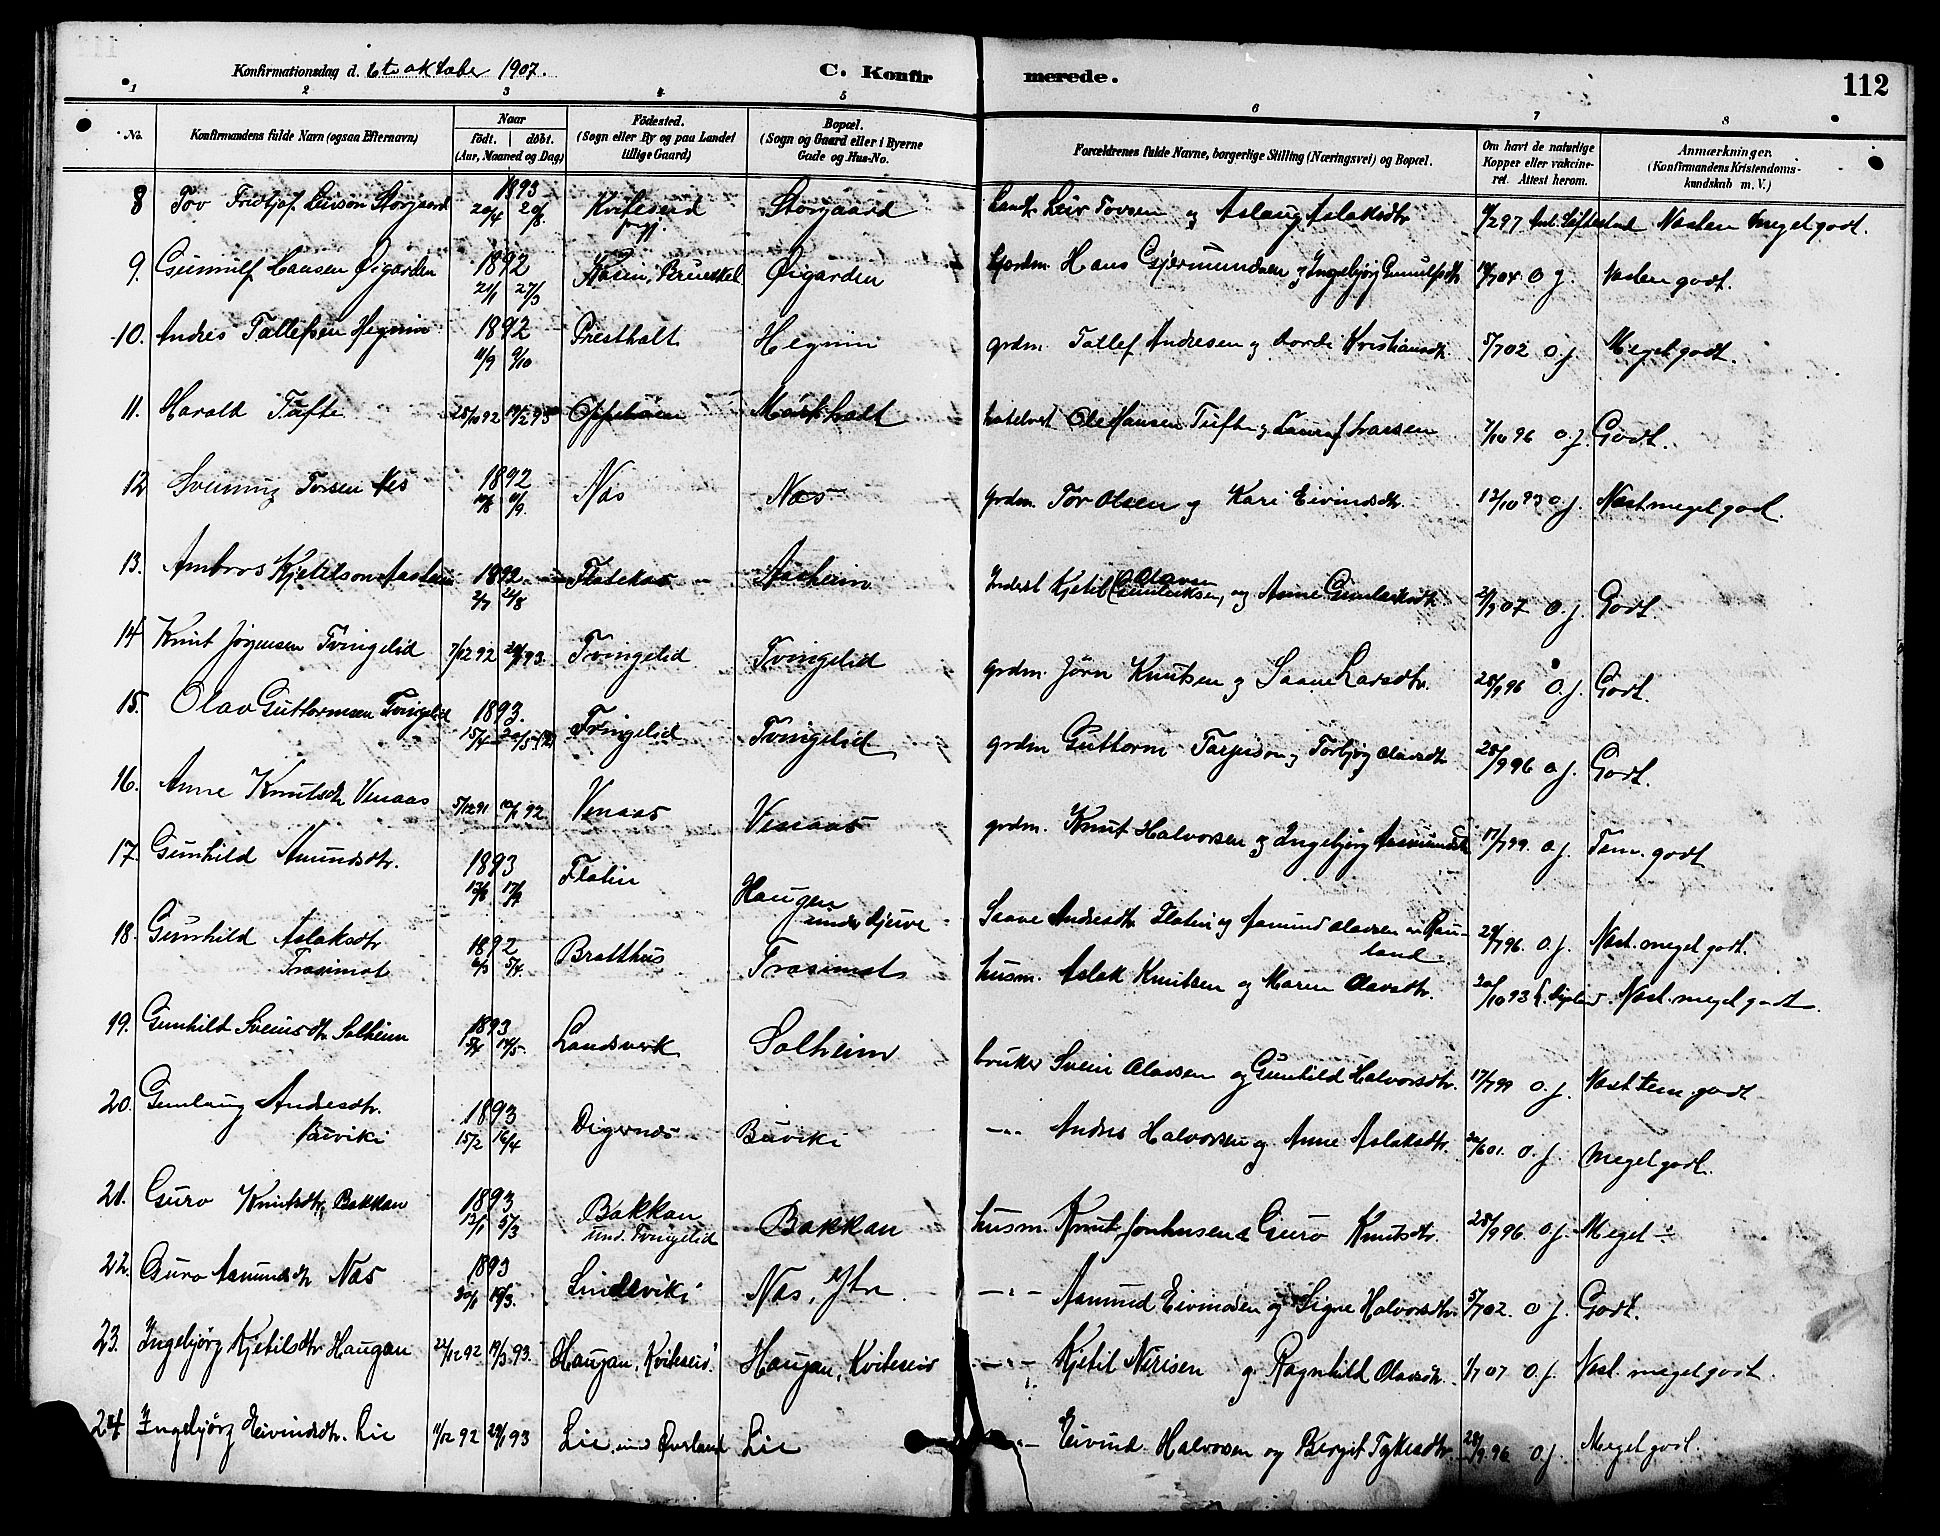 Konfirmationsdag d. 6te oktober 1907. C. Konfir merede. 112
1 2 3 4 5 6 7 8
No. Konfirmandens fulde Navn (ogsaa Efternavn) Naar født. døbt. (Aar, Maaned og Dag) Fødested. (Sogn eller By og paa Landet tillige Gaard) Bopæl. (Sogn og Gaard eller i Byerne Gade og Hus-No. Forældrenes fulde Navne, borgerlige Stilling (Næringsvei) og Bopæl. Om havt de naturlige Kopper eller vakcineret. Attest herom. Anmærkninger. (Konfirmandens Kristendomskundskab m. V.)
8 Tov Fridtjof Leivson Storgaard 1893 20/4 20/8 Kviteseid Storgaard Leiv Tovsen og Aslaug Aslaksdtr Næsten meget godt.
9. Gunnulf Hansen Øigarden 1892 21/1 27/3 Øigarden Hans Gjermundsen og Ingebjørg Gunulfsdtr 04 o j. næsten godt.
10. Andres Tallefsen Hegnin 1892 11/9 9/10 Prestholt Hegnin grdm. Tallef Andresen og Dordi Kristiansdtr 5/7 02 o.j. Meget godt.
11. Harald Tufte 25/10 92 Morkholt Ole Hansen Tufte og Laura Larsen 7/10 96 o.j. Godt.
12 Sveinung Torsen Nes 1892 11/9. Næs Næs grdm. Tor Olsen og Kari Eivindsdtr. 12/10 93 o.j. Næst meget godt.
13. Ambros Kjetilson Aasheim 1892 2/7 21/8 Flatekaas Aasheim Inderst Kjetil Olavsen (Gunleiksen, og Anne Gunleiksdtr 2/7 07 o.j. Godt.
14 Knut Jørgensen Tvingelid 7/12 92 93. Tvingelid Tvingelid grdm. Jørn Knutsen og Saave Larsdtr. 28/9 96 o.j. Godt.
15. Olav Guttormsen Tvingelid 1893. 15/4 Tvingelid Tvingelid grdm Guttorm Tarjeison og Torbjøg Olavsdtr 28/9 96 o j. Godt.
16. Anne Knutsdtr Venaas 5/12 91 92 Venaas Venaas grdm. Knut Halvorsen og Ingebjørg Aasmundsdtr 17/7 99. o j. Tem. godt
17. Gunhild Amundsdtr. 1893 Flatin Haugen under Kjeive Saave Andresdtr Flatin og Aamund Olavsen in Rauland 96. o.j. Næst. meget godt.
18. Gunhild Aslaksdtr Træsimot 1892 6/3 5/4. Bratthus Træsimot husm. Aslak Knutsen og Maren Olavsdtr. 20/10 93 Næst. meget godt
19. Gunhild Sveinsdtr Solheim 1893 14/5 Landsverk Solheim bruker Svein Olavsen og Gunhild Halvorsdtr. 17/7 99 o.j. Næst tem. godt
20. Gunlaug Andresdtr. Buviki 1893 15/2 16/4 Digernæs Buviki —"— Andres Halvorsen og Anne Aslaksdtr. 01. o.j. Meget godt.
21. Guro Knutsdtr, Bakkan 1893 12/1 5/3 Bakkan und. Tvingelid Bakkan husm. Knut og Guro Knutsdtr. 28/9 96. o.j. Meget "
22. Guro Aamundsdtr Næs 1893 20/1 19/3. Lindeviki Næs, Ytre —"— Aamund Eivindsen og Signe Halvorsdtr. 5/7 02. o j. Godt.
23. Ingebjørg Kjetilsdtr Haugan 22/12 92 19/3 93. Haugan, Kviteseid. Haugan, Kviteseid —"— Kjetil Nerisen og Ragnhild Olavsdtr. 1/7 07 o.j. Næst. meget godt.
24 Ingebjørg Eivindsdtr. Lie 11/12 92 29/1 93 Lie und Øverland Lie —"— Eivind Halvorsen og Bergit Tykesdtr. 28/9 96 o.j. Meget godt.